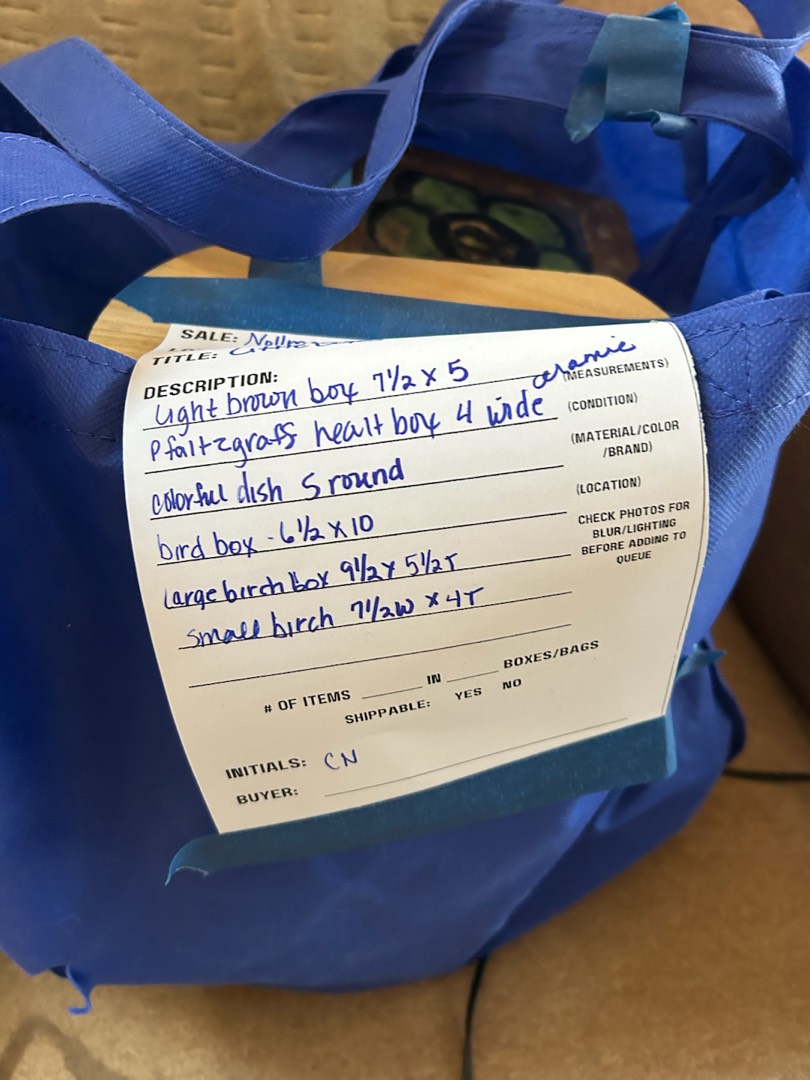 SALE:
TITLE:
DESCRIPTION:
light brown box 7 1/2 x 5 (MEASUREMENTS)
Pfaltzgraff heart box 4 wide ceramic (CONDITION)
(MATERIAL/COLOR
/BRAND)
colorful dish 5 round (LOCATION)
bird box - 6 1/2 x 10
CHECK PHOTOS FOR
BLUR/LIGHTING
BEFORE ADDING TO
QUEUE
large birch box 9 1/2 x 5 1/2 T
small birch 7 1/2 W x 4 T
# OF ITEMS ____ IN ____ BOXES/BAGS
SHIPPABLE: YES NO
INITIALS: CN
BUYER: